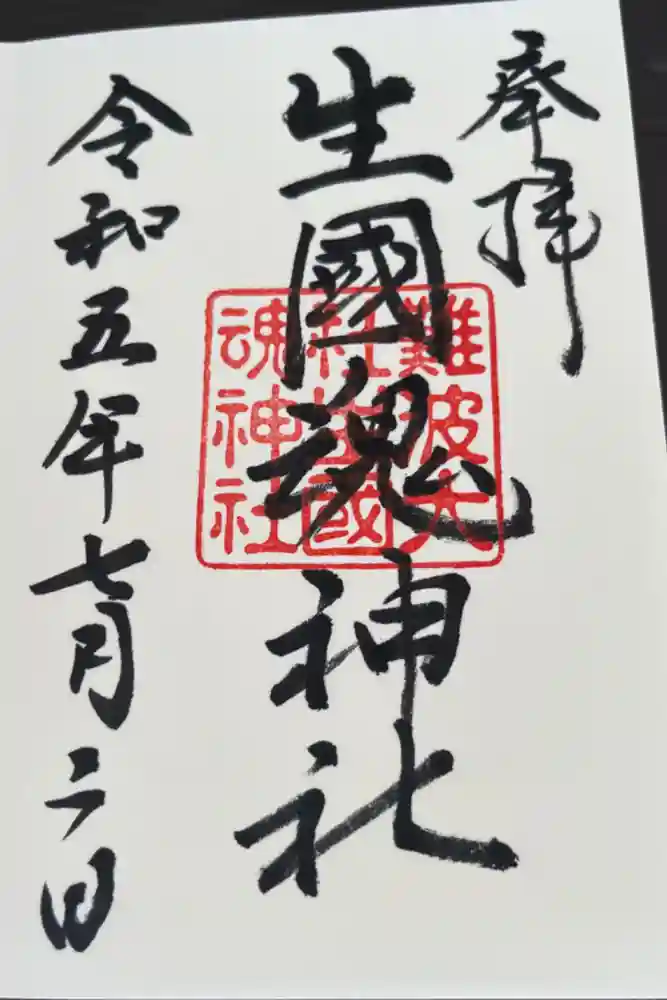 奉拝
生國魂神社
難波大
社生國
魂神社
令和五年七月二日